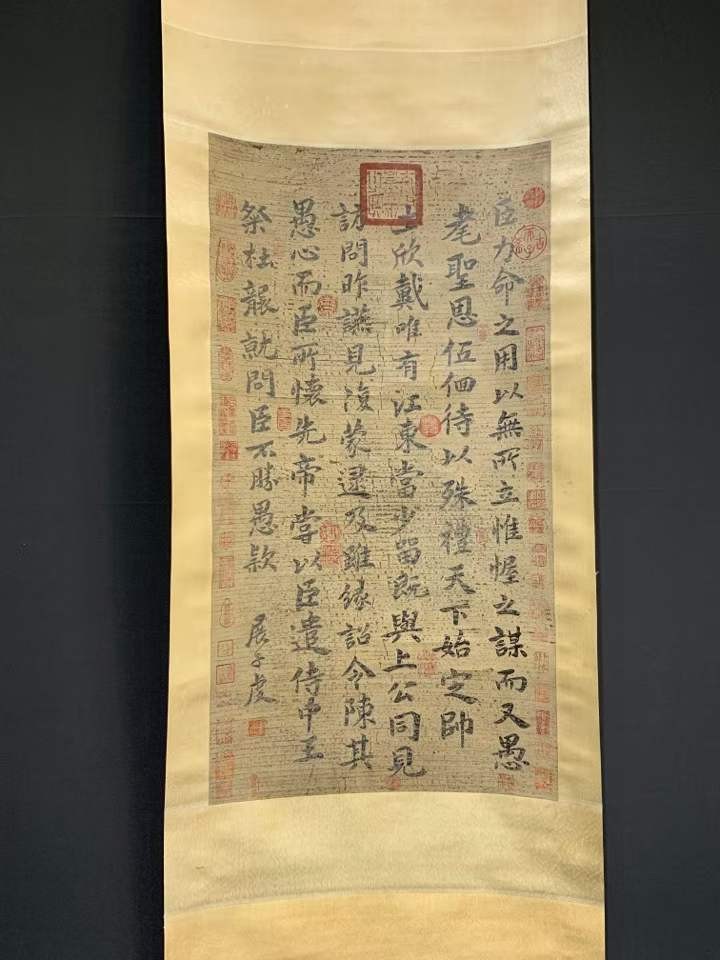 臣力命之用以無所立惟幄之謀而又愚
耄聖恩伍佪待以殊禮天下始定帥
土欣戴唯有江東當少留既與上公同見
訪問昨讌見復蒙逮及雖緣詔令陳其
愚心而臣所懷先帝掌以臣遣侍中王
祭杜龔就問臣不勝愚款
展子虔